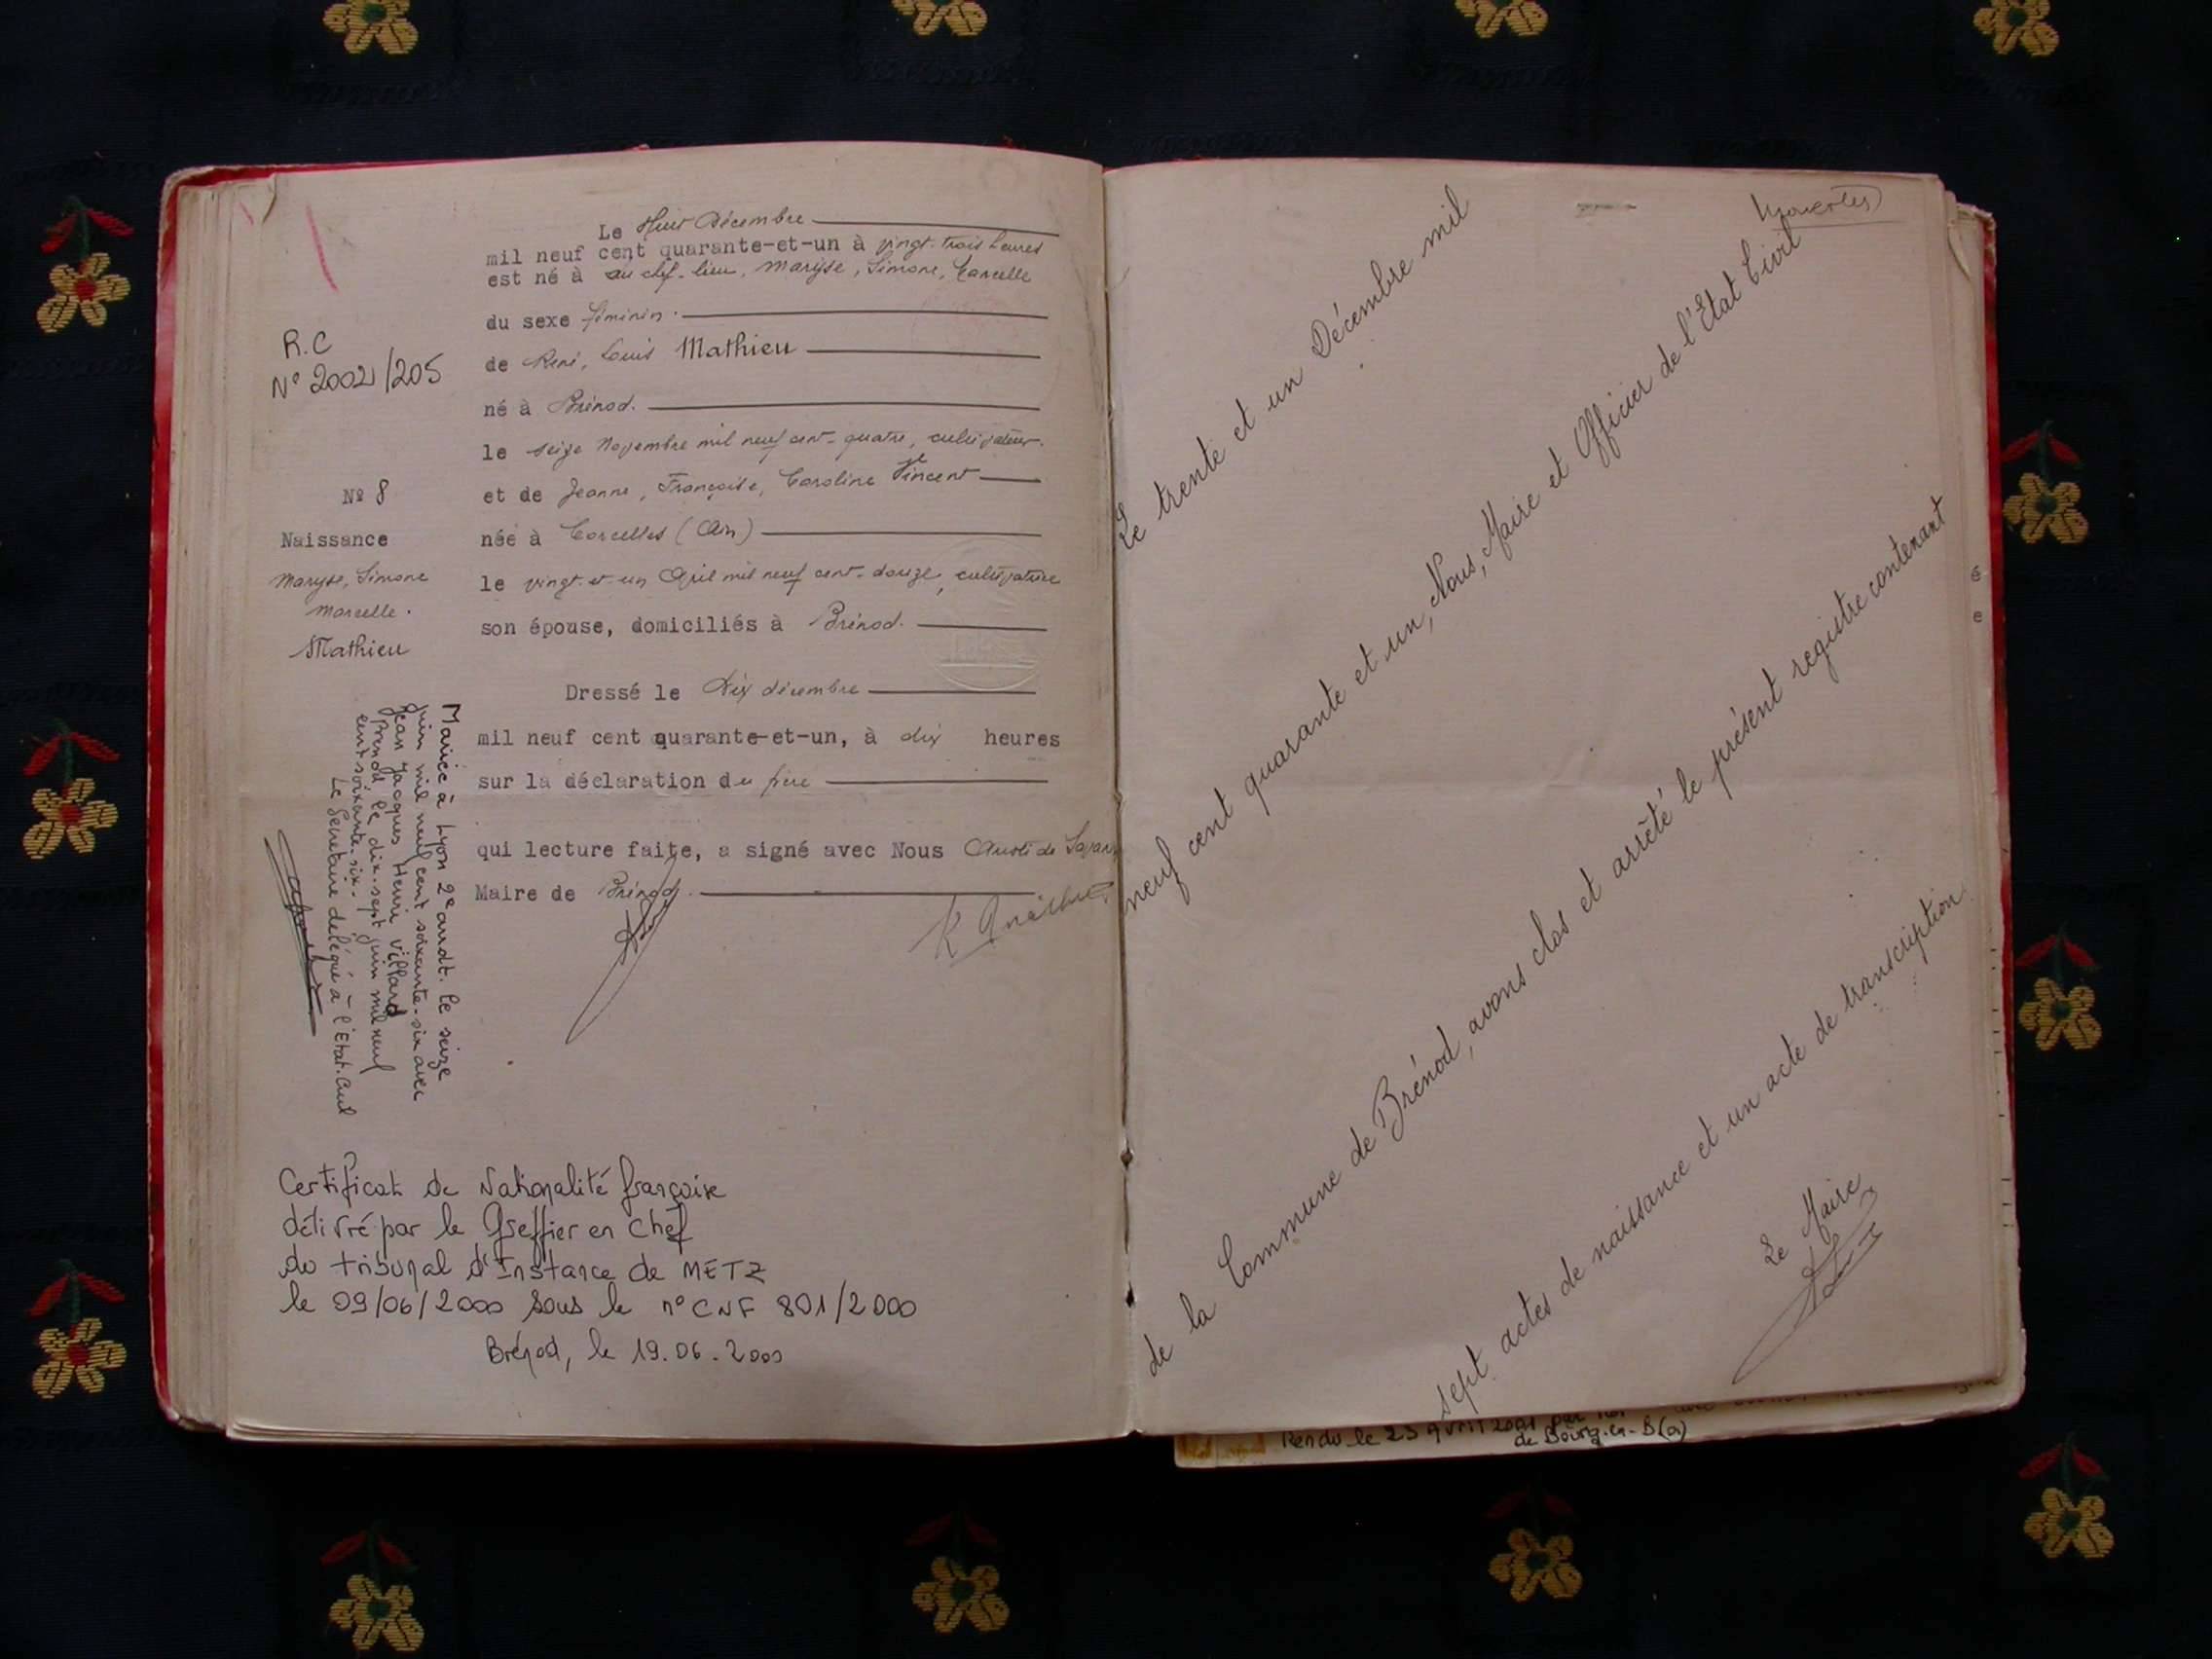 Le Huit Décembre
mil neuf cent quarante-et-un à vingt-trois heures
est né à au chef-lieu, Maryse, Simone, Marcelle
du sexe féminin.
de René, Louis Mathieu
né à Brénod.
le seize Novembre mil neuf cent-quatre, cultivateur.
et de Jeanne, Françoise, Caroline Vincent
née à Corcelles (Ain)
le vingt-et-un Avril mil neuf cent-douze, cultivatrice
son épouse, domiciliés à Brénod.
Dressé le Dix décembre
mil neuf cent quarante-et-un, à dix heures
sur la déclaration du père
qui lecture faite, a signé avec Nous
Maire de Brénod.
R.C
N° 2002/205
Nº 8
Naissance
Maryse, Simone
Marcelle.
Mathieu
Mariée à Lyon 2e arrdt. le seize
juin mil neuf cent soixante-six avec
Jean Jacques Henri Villard
Brénod le dix-sept juin mil neuf
cent soixante-six.
Le Secrétaire délégué à l'Etat-Civil
Certificat de Nationalité française
délivré par le Greffier en Chef
du tribunal d'Instance de METZ
le 09/06/2000 sous le n° CNF 801/2000
Brénod, le 19.06.2000
Le trente et un Décembre mil
neuf cent quarante et un, Nous, Maire et Officier de l'Etat Civil
de la Commune de Brénod, avons clos et arrêté le présent registre contenant
sept actes de naissance et un acte de transcription.
Le Maire
é
e
Rendu le 23 Avril 2001 par
de Bourg-en-B(a)